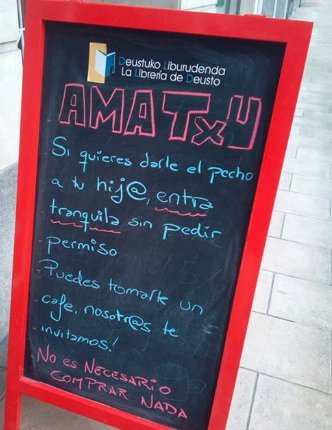 Deustuko Liburudenda
La Librería de Deusto
AMATXU
Si quieres darle el pecho
a tu hij@, entra
tranquila sin pedir
permiso
Puedes tomarte un
café, nosotr@s te
invitamos!
NO ES NECESARIO
COMPRAR NADA